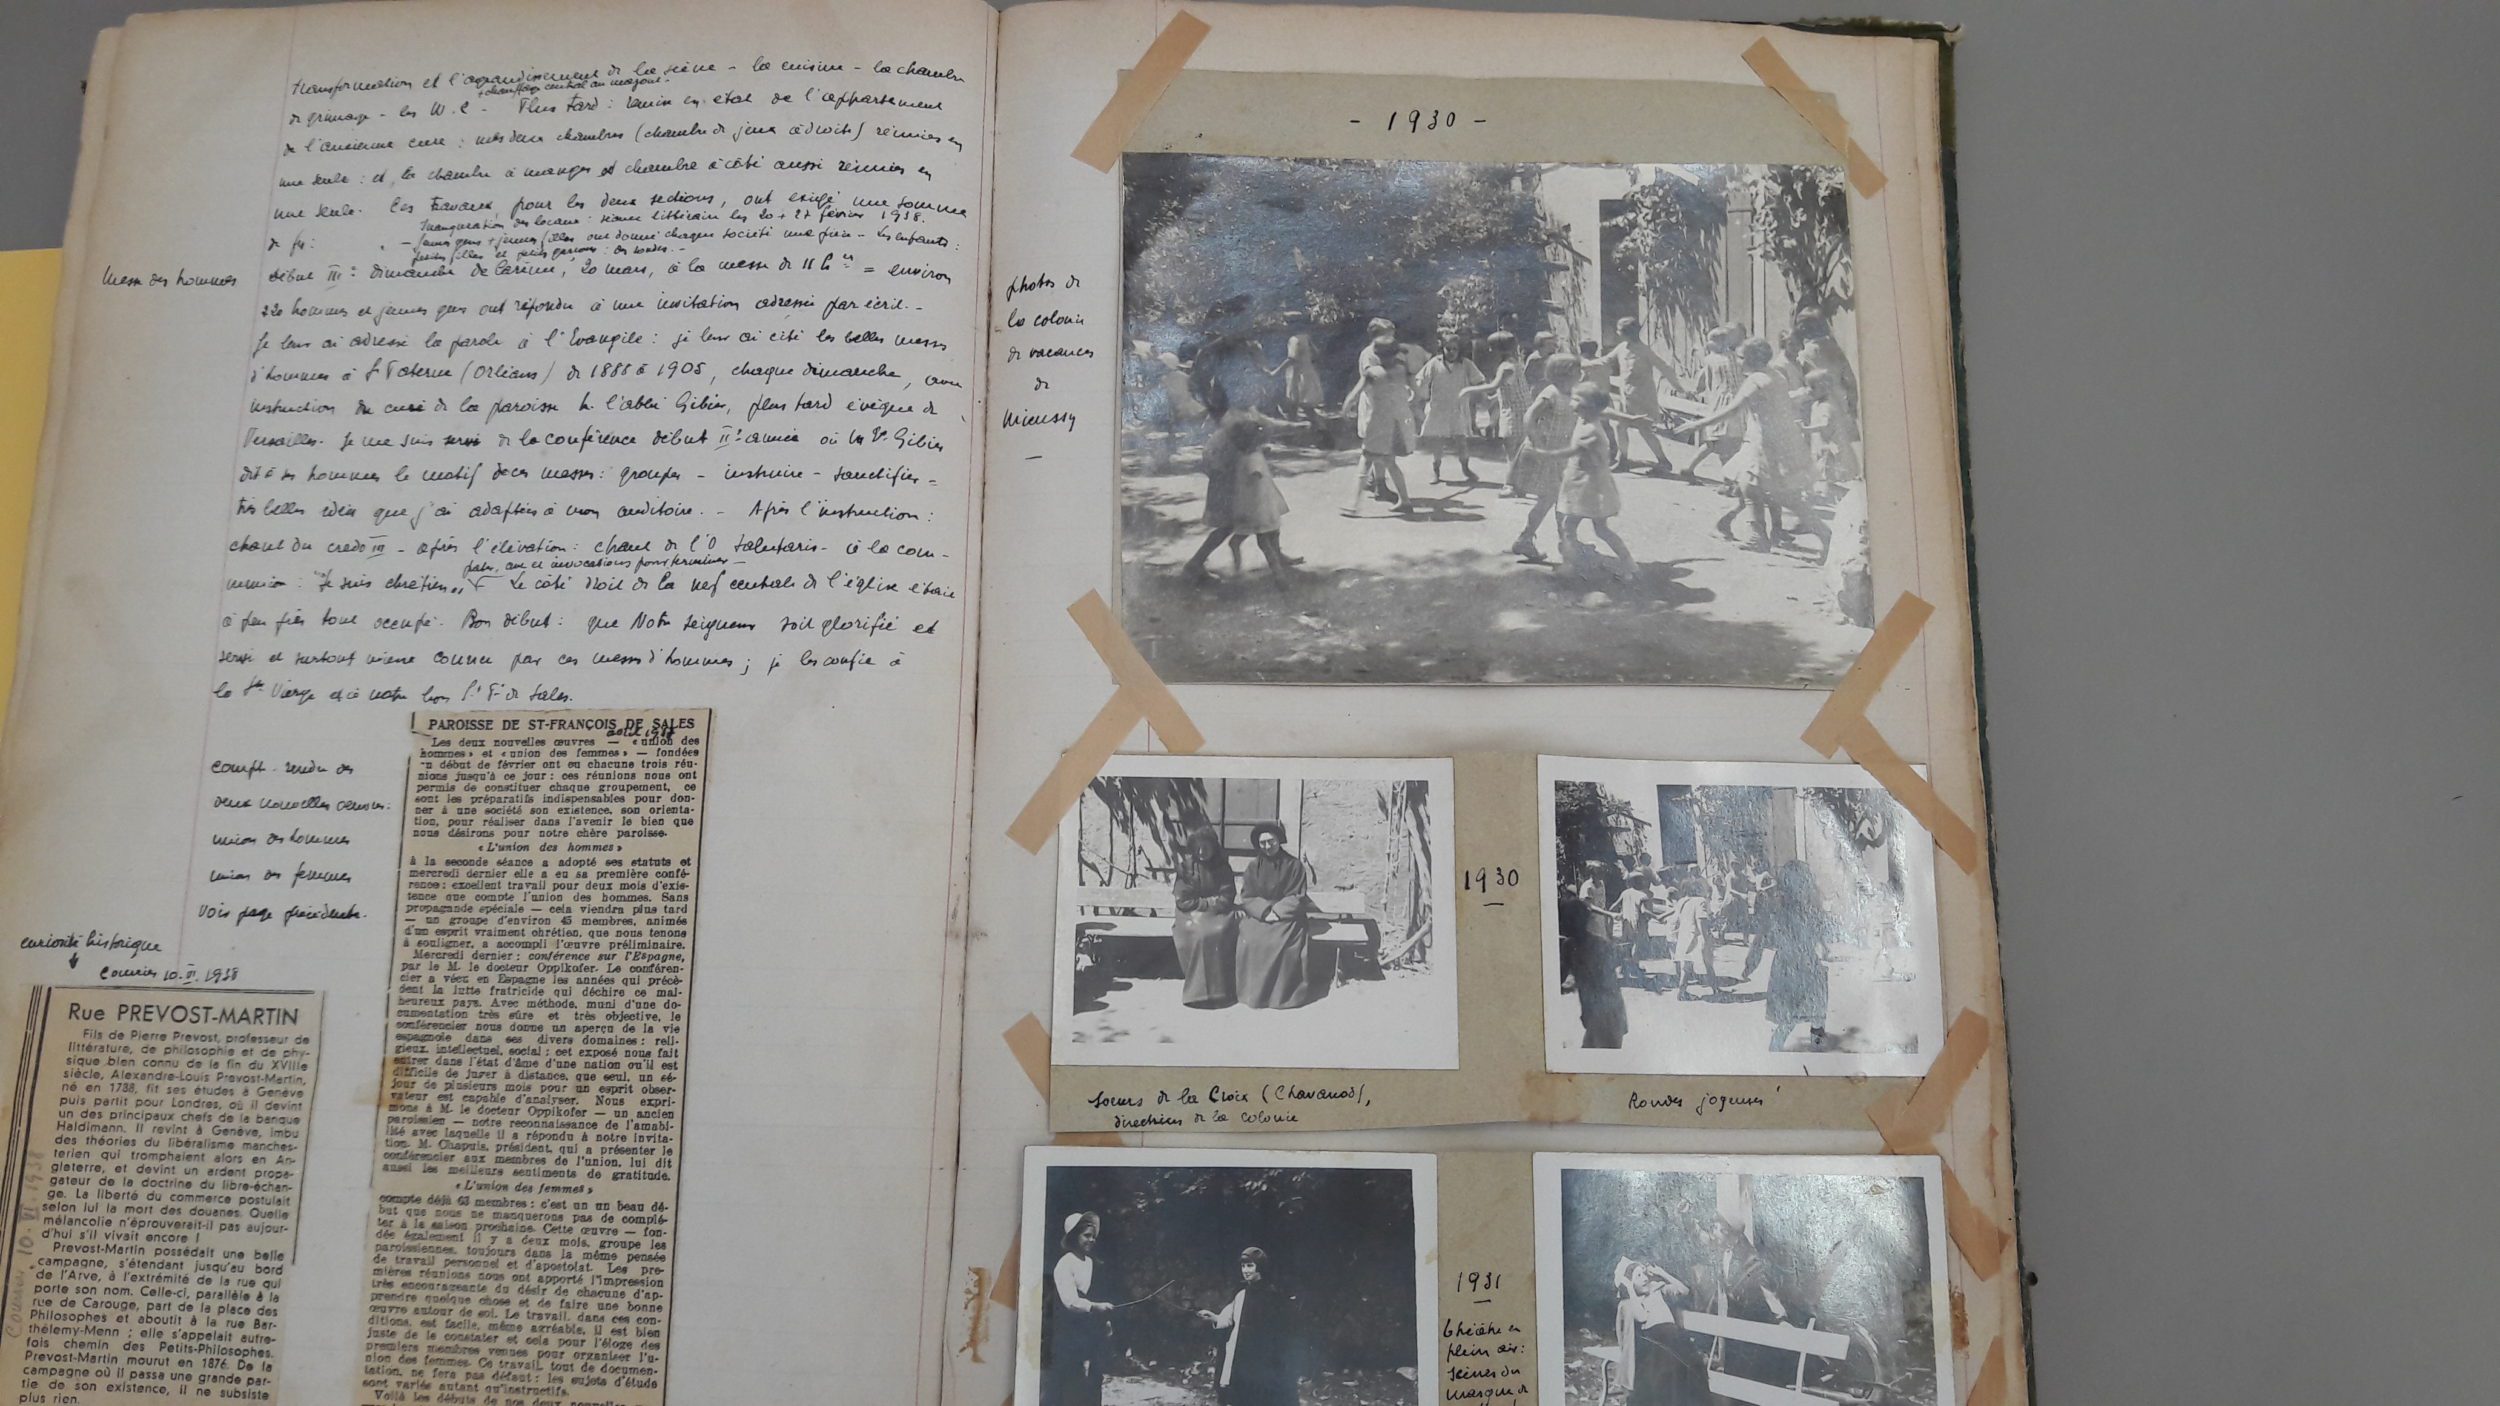 transformation et l'agrandissement de la scène - la cuisine - la chambre
+ chauffage central au mazout.
de grimage - les W.C - Plus tard : remise en état de l'appartement
de l'ancienne cure : mes deux chambres (chambre de jeux à droite) réunies en
une seule : et la chambre à manger et chambre à côté aussi réunies en
une seule. Ces travaux pour les deux sections, ont exigé une somme
de frs :
Inauguration des locaux : séance littéraire les 20 + 27 février 1938.
- jeunes gens + jeunes filles ont donné chaque société une pièce - Les enfants :
petites filles et petits garçons : des rondes. -
Messe des hommes
Début III e dimanche de Carême, 20 mars, à la messe de 11 h res = environ
220 hommes et jeunes gens ont répondu à une invitation adressée par écrit. -
Je leur ai adressé la parole à l'Evangile : je leur ai cité les belles messes
d'hommes à St Paterne (Orléans) de 1888 à 1905, chaque dimanche, avec
instruction du curé de la paroisse M. l'abbé Gibier, plus tard évêque de
Versailles. Je me suis servi de la conférence début II e année où Mgr Gibier
dit à ses hommes le motif de ces messes : grouper - instruire - sanctifier =
très belles idées que j'ai adaptées à mon auditoire. - Après l'instruction :
chant du credo III - après l'élévation : chant de l'O Salutaris - à la com-
pater, ave et invocations pour terminer -
munion : "Je suis chrétien" Le côté droit de la nef centrale de l'église était
à peu près tout occupé. Bon début : que Notre Seigneur soit glorifié et
servi et surtout mieux connu par ces messes d'hommes ; je les confie à
la Ste Vierge et à notre bon St Fs de Sales.
compte-rendu des
deux nouvelles œuvres :
union des hommes
union des femmes
voir page précédente.
curiosité historique
Courrier 10. VI. 1938
Rue PREVOST-MARTIN
Fils de Pierre Prevost, professeur de
littérature, de philosophie et de phy-
sique bien connu de la fin du XVIIIe
siècle, Alexandre-Louis Prevost-Martin,
né en 1788, fit ses études à Genève
puis partit pour Londres, où il devint
un des principaux chefs de la banque
Haldimann. Il revint à Genève, imbu
des théories du libéralisme manches-
terien qui tromphaient alors en An-
gleterre, et devint un ardent propa-
gateur de la doctrine du libre-échan-
ge. La liberté du commerce postulait
selon lui la mort des douanes. Quelle
mélancolie n'éprouverait-il pas aujour-
d'hui s'il vivait encore !
Prevost-Martin possédait une belle
campagne, s'étendant jusqu'au bord
de l'Arve, à l'extrémité de la rue qui
porte son nom. Celle-ci, parallèle à la
rue de Carouge, part de la place des
Philosophes et aboutit à la rue Bar-
thélemy-Menn ; elle s'appelait autre-
fois chemin des Petits-Philosophes.
Prevost-Martin mourut en 1876. De la
campagne où il passa une grande par-
tie de son existence, il ne subsiste
plus rien.
Courrier 10. VI. 1938
PAROISSE DE ST-FRANÇOIS DE SALES
avril 1938
Les deux nouvelles œuvres — « union des
hommes » et « union des femmes » — fondées
au début de février ont eu chacune trois réu-
nions jusqu'à ce jour : ces réunions nous ont
permis de constituer chaque groupement, ce
sont les préparatifs indispensables pour don-
ner à une société son existence, son orienta-
tion, pour réaliser dans l'avenir le bien que
nous désirons pour notre chère paroisse.
« L'union des hommes »
à la seconde séance a adopté ses statuts et
mercredi dernier elle a eu sa première confé-
rence : excellent travail pour deux mois d'exis-
tence que compte l'union des hommes. Sans
propagande spéciale — cela viendra plus tard
— un groupe d'environ 45 membres, animés
d'un esprit vraiment chrétien, que nous tenons
à souligner, a accompli l'œuvre préliminaire.
Mercredi dernier : conférence sur l'Espagne,
par le M. le docteur Oppikofer. Le conféren-
cier a vécu en Espagne les années qui précè-
dent la lutte fratricide qui déchire ce mal-
heureux pays. Avec méthode, muni d'une do-
cumentation très sûre et très objective, le
conférencier nous donne un aperçu de la vie
espagnole dans ses divers domaines : reli-
gieux, intellectuel, social ; cet exposé nous fait
entrer dans l'état d'âme d'une nation qu'il est
difficile de juger à distance, que seul, un sé-
jour de plusieurs mois pour un esprit obser-
vateur est capable d'analyser. Nous expri-
mons à M. le docteur Oppikofer — un ancien
paroissien — notre reconnaissance de l'amabi-
lité avec laquelle il a répondu à notre invita-
tion. M. Chapuis, président, qui a présenter le
conférencier aux membres de l'union, lui dit
aussi les meilleurs sentiments de gratitude.
« L'union des femmes »
compte déjà 63 membres : c'est un un beau dé-
but que nous ne manquerons pas de complé-
ter à la saison prochaine. Cette œuvre — fon-
dée également il y a deux mois, groupe les
paroissiennes, toujours dans la même pensée
de travail personnel et d'apostolat. Les pre-
mières réunions nous ont apporté l'impression
très encourageante du désir de chacune d'ap-
prendre quelque chose et de faire une bonne
œuvre autour de soi. Le travail, dans ces con-
ditions, est facile, même agréable, il est bien
juste de le constater et cela pour l'éloge des
premiers membres venues pour organiser l'u-
nion des femmes. Ce travail, tout de documen-
tation, ne fera pas défaut : les sujets d'étude
sont variés autant qu'instructifs.
Voilà les débuts de nos deux nouvelles
- 1930 -
photos de
la colonie
de vacances
de
Mieussy
1930
Soeurs de la Croix (Chavanod),
directrices de la colonie
Rondes joyeuses !
1931
théâtre en
plein air :
scènes du
masque de